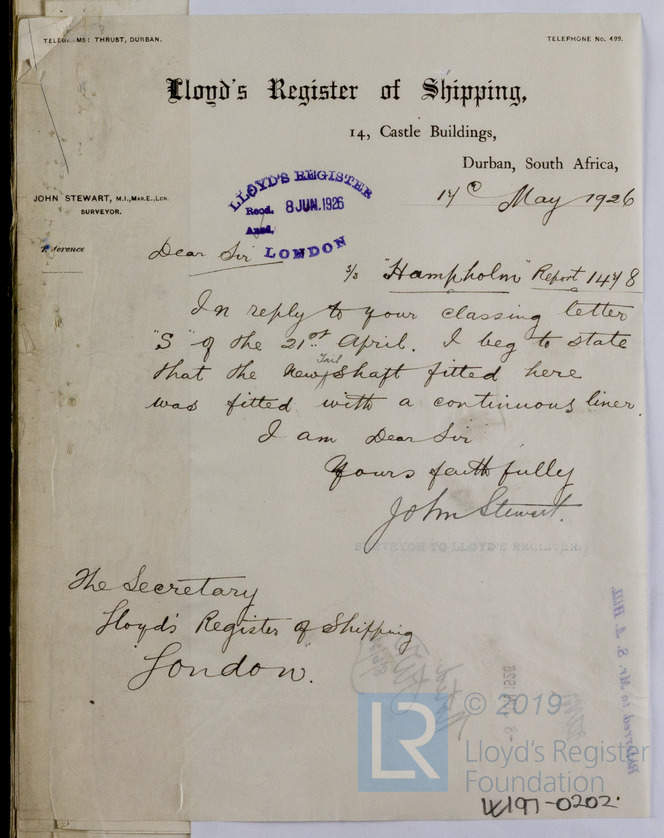 TELEGRAMS: THRUST, DURBAN.
TELEPHONE No. 499.
Lloyd's Register of Shipping,
14, Castle Buildings,
Durban, South Africa,
JOHN STEWART, M.I., MAR.E., LON.
SURVEYOR.
LLOYD'S REGISTER
Recd. 8 JUN. 1926
Ansd.
LONDON
May 1926
Reference
Dear Sir
S/S "Hampholm" Report 1478
In reply to your classing letter
"S" of the 21st April. I beg to state
that the New Tail Shaft fitted here
was fitted with a continuous liner.
I am Dear Sir
Yours faithfully
John Stewart.
SURVEYOR TO LLOYD'S REGISTER.
The Secretary
Lloyd's Register of Shipping
London.
LR
© 2019
Lloyd's Register
Foundation
W197-0202.